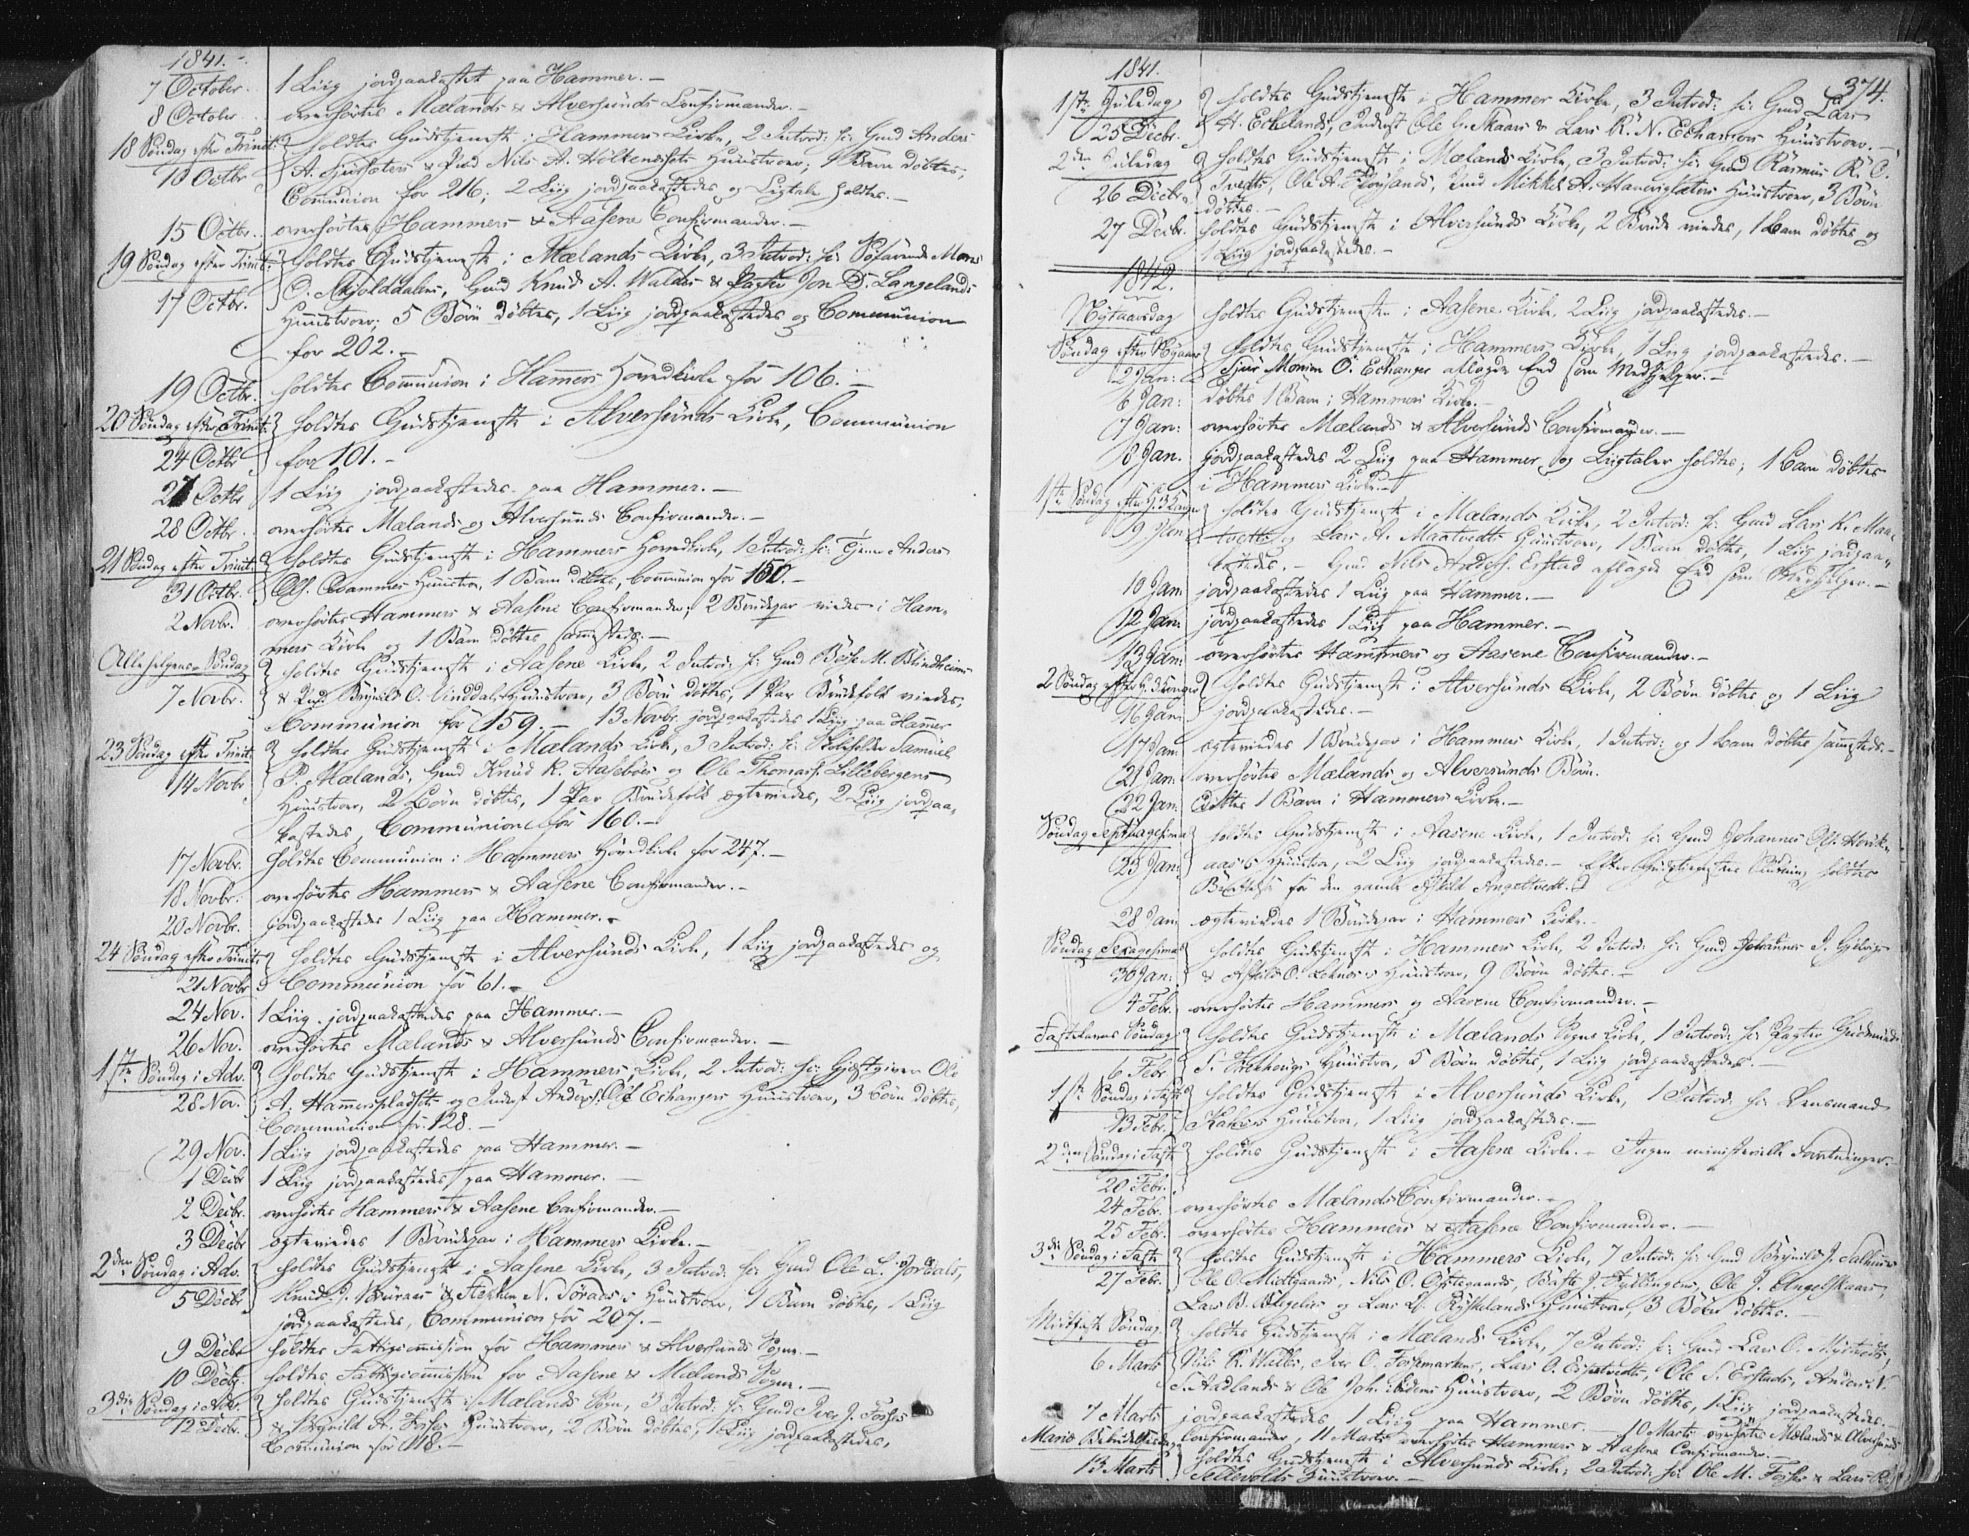 1841.
7 October. 1 Liig jordpaakastet paa Hammer.
8 October. overhørtes Mælands & Alversunds Confirmander.
18 Søndag efter Trinit: holdtes Gudstjeneste i Hammers Kirke, 2 Introd: s: Gmd Anders
10 Octbr. Nils A. Holtens Huustroer; 1 Barn døbtes,
Communion for 216; 2 Liig jordpaakastedes og Ligtale holdtes.
15 Octbr. overhørtes Hammers & Aasene Confirmander.
19 Søndag efter Trinit: holdtes Gudstjeneste i Mælands Kirke, 3 Introd: s: Mons
17 Octbr. O. Gmd Knud A. & Jon D. Langelands
Huustroer; 5 Børn døbtes, 1 Liig jordpaakastedes og Communion
for 202.
19 Octbr. holdtes Communion i Hammers Hovedkirke for 106.
20 Søndag efter Trinit: holdtes Gudstjeneste i Alversunds Kirke, Communion
24 Octbr for 101.
27 Octbr 1 Liig jordpaakastedes paa Hammer.
28 Octbr. overhørtes Mælands og Alversunds Confirmander.
21 Søndag efter Trinit: holdtes Gudstjeneste i Hammers Hovedkirke, 1 Introd: s: Anders
31 Octbr. Ols. Hammers Huustroe, 1 Barn døbtes, Communion for 150.
2 Novbr. overhørtes Hammers & Aasene Confirmander; 2 Brudepar viedes i Ham-
mers Kirke og 1 Barn døbtes sammesteds.
Allehelgens Søndag holdtes Gudstjeneste i Aasene Kirke, 2 Introd: s: Gmd M. Blindheims
7 Novbr. & Brynild O. Huustroer, 3 Børn døbtes, 1 Par Brudefolk viedes,
Communion for 159. 13 Novbr. jordpaakastedes 1 Liig paa Hammer
23 Søndag efter Trinit: holdtes Gudstjeneste i Mælands Kirke, 3 Introd: s: Samuel
14 Novbr. P. Mælands, Gmd Knud K. Aasebøes og Ole Thomass. Lillebergens
Huustroer, 2 Børn døbtes, 1 Par Brudefolk ægteviedes, 2 Liig jordpaa-
kastedes, Communion for 160.
17 Novbr. holdtes Communion i Hammers Hovedkirke for 247.
18 Novbr. overhørtes Hammers & Aasene Confirmander.
20 Novbr. jordpaakastedes 1 Liig paa Hammer.
24 Søndag efter Trinit: holdtes Gudstjeneste i Alversunds Kirke, 1 Liig jordpaakastedes og
21 Novbr Communion for 61.
24 Nov. 1 Liig jordpaakastedes paa Hammer.
26 Nov. overhørtes Mælands & Alversunds Confirmander.
1ste Søndag i Adv. holdtes Gudstjeneste i Hammers Kirke, 2 Introd: s: Gjestgiver Ole
28 Nov. A. Hammerspladsets og Anders Ols Echangers Huustroer, 3 Børn døbtes,
Communion for 128.
29 Nov. 1 Liig jordpaakastedes paa Hammer.
1 Decbr 1 Liig jordpaakastedes paa Hammer.
2 Decbr. overhørtes Hammers & Aasene Confirmander.
3 Decbr ægteviedes 1 Brudepar i Hammers Kirke.
2den Søndag i Adv. holdtes Gudstjeneste i Aasene Kirke, 3 Introd: s: Gmd Ole
5 Decbr Knud J. & N. Huustroer, 1 Barn døbtes, 1 Liig
jordpaakastedes, Communion for 207.
9 Decbr holdtes Fattigcommission for Hammers & Alversunds Sogne.
10 Decbr. holdtes Fattigcommission for Aasene & Mælands Sogne.
3die Søndag i Adv. holdtes Gudstjeneste i Mælands Sogn, 3 Introd: s: Gmd Iver J. Fosses
12 Decbr. & Brynild A. Fosses Huustroer, 2 Børn døbtes, 1 Liig jordpaakastedes,
Communion for 118.
374.
1841.
1ste Juledag holdtes Gudstjeneste i Hammer Kirke, 3 Introd: s: Gmd Lars
25 Decbr. H. Echelands, Ole G. Skaars & Lars N. Echangers Huustroer.
2den Juledag holdtes Gudstjeneste i Mælands Kirke, 3 Introd: s: Gmd Rasmus R. C.
26 Decbr. Tvedts, Ole A. Mikkel A. Huustroer, 3 Børn
døbtes.
27 Decbr. holdtes Gudstjeneste i Alversunds Kirke, 2 Brude viedes, 1 Barn døbtes og
1 Liig jordpaakastedes.
1842.
Nytaarsdag holdtes Gudstjeneste i Aasene Kirke, 2 Liig jordpaakastedes.
Søndag efter Nytaar holdtes Gudstjeneste i Hammers Kirke, 1 Liig jordpaakastedes.
2 Jan: Sjur Monsen O. Echanger aflagde Eed som Medhjelper.
6 Jan: døbtes 1 Barn i Hammers Kirke.
7 Jan: overhørtes Mælands & Alversunds Confirmander.
8 Jan. jordpaakastedes 2 Liig paa Hammer og Liigtaler holdtes; 1 Barn døbtes
i Hammers Kirke.
1ste Søndag efter H. 3 Konger holdtes Gudstjeneste i Mælands Kirke, 2 Introd: s: Gmd Lars K. Maa-
9 Jan: tvedts og Lars A. Maatvedts Huustroer, 1 Barn døbtes, 1 Liig jordpaa-
kastedes. Gmd Nils Anders. Erstad aflagde Eed som Medhjelper.
10 Jan. jordpaakastedes 1 Liig paa Hammer.
12 Jan: jordpaakastedes 1 Liig paa Hammer.
13 Jan: overhørtes Hammers og Aasene Confirmander.
2 Søndag efter H. 3 Konger holdtes Gudstjeneste i Alversunds Kirke, 2 Børn døbtes og 1 Liig
16 Jan: jordpaakastedes.
17 Jan: ægteviedes 1 Brudepar i Hammers Kirke, 1 Introd: og 1 Barn døbtes sammesteds.
21 Jan: overhørtes Mælands og Alversunds Børn.
22 Jan: døbtes 1 Barn i Hammers Kirke.
Søndag Septuagesima holdtes Gudstjeneste i Aasene Kirke, 1 Introd: s: Gmd Johannes Ols.
23 Jan: Huustroe, 2 Liig jordpaakastedes. Efter Gudstjenestens Slutning holdtes
for den gamle Angeltvedt.
28 Jan: ægteviedes 1 Brudepar i Hammers Kirke.
Søndag Sexagesima holdtes Gudstjeneste i Hammers Kirke, 2 Introd: s: Gmd Johannes J.
30 Jan: & O. Huustroer, 9 Børn døbtes.
4 Febr. overhørtes Hammers og Aasene Confirmander.
Fastelavns Søndag holdtes Gudstjeneste i Mælands Sogns Kirke, 1 Introd: s: Gudmund
6 Febr S. Huustroe, 5 Børn døbtes, 1 Liig jordpaakastedes.
1ste Søndag i Faste holdtes Gudstjeneste i Alversunds Kirke, 1 Introd: s: Lensmand
13 Febr. Huustroe, 1 Liig jordpaakastedes.
2den Søndag i Faste holdtes Gudstjeneste i Aasene Kirke. Ingen ministerielle Forretninger.
20 Febr.
24 Febr. overhørtes Mælands Confirmander.
25 Febr. overhørtes Hammers & Aasene Confirmander.
3die Søndag i Faste holdtes Gudstjeneste i Hammers Kirke, 7 Introd: s: Gmd Brynild J.
27 Febr. Ole O. Midtgaards, Nils O. Ole J.
Lars B. og Lars Huustroer, 3 Børn døbtes.
Midfaste Søndag holdtes Gudstjeneste i Mælands Kirke, 7 Introd: s: Gmd Lars O.
6 Marts Nils R. Iver O. Lars O. Ole S. Erstads, Anders N.
S. Aadlands & Ole Joh. Huustroer, 2 Børn døbtes, 1 Liig jordpaakastedes.
7 Marts jordpaakastedes 1 Liig paa Hammer. 10 Marts overhørtes Mælands & Alversunds
Confirmander, 11 Marts overhørtes Hammers & Aasene Confirmander.
Mariæ Bebudelsesdag holdtes Gudstjeneste i Alversunds Kirke; 2 Introd: s: Ole M. Fosses & Lars
13 Marts Huustroer.